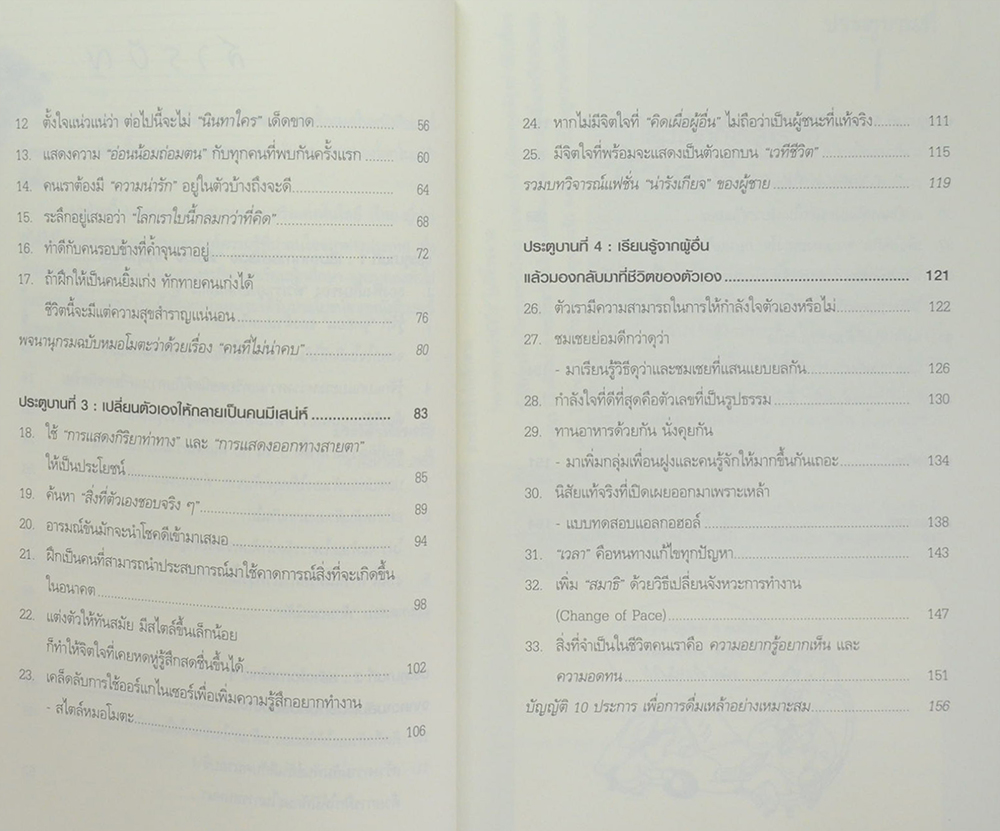 สารบัญ
12 ตั้งใจแน่วแน่ว่า ต่อไปนี้จะไม่ "นินทาใคร" เด็ดขาด.................... 56
13. แสดงความ "อ่อนน้อมถ่อมตน" กับทุกคนที่พบกันครั้งแรก ....... 60
14. คนเราต้องมี "ความน่ารัก" อยู่ในตัวบ้างถึงจะดี......................... 64
15. ระลึกอยู่เสมอว่า "โลกเราใบนี้กลมกว่าที่คิด"............................ 68
16. ทำดีกับคนรอบข้างที่ค้ำจุนเราอยู่............................................ 72
17. ถ้าฝึกให้เป็นคนยิ้มเก่ง ทักทายคนเก่งได้
ชีวิตนี้จะมีแต่ความสุขสำราญแน่นอน....................................... 76
พจนานุกรมฉบับหมอโมตะว่าด้วยเรื่อง "คนที่ไม่น่าคบ"..................... 80
ประตูบานที่ 3 : เปลี่ยนตัวเองให้กลายเป็นคนมีเสน่ห์ .................... 83
18. ใช้ "การแสดงกิริยาท่าทาง" และ "การแสดงออกทางสายตา"
ให้เป็นประโยชน์................................................................ 85
19. ค้นหา "สิ่งที่ตัวเองชอบจริง ๆ"............................................. 89
20. อารมณ์ขันมักจะนำโชคดีเข้ามาเสมอ ..................................... 94
21. ฝึกเป็นคนที่สามารถนำประสบการณ์มาใช้คาดการณ์สิ่งที่จะเกิดขึ้น
ในอนาคต......................................................................... 98
22. แต่งตัวให้ทันสมัย มีสไตล์ขึ้นเล็กน้อย
ก็ทำให้จิตใจที่เคยหดหู่รู้สึกสดชื่นขึ้นได้................................. 102
23. เคล็ดลับการใช้ออร์แกไนเซอร์เพื่อเพิ่มความรู้สึกอยากทำงาน
- สไตล์หมอโมตะ................................................................ 106
24. หากไม่มีจิตใจที่ "คิดเผื่อผู้อื่น" ไม่ถือว่าเป็นผู้ชนะที่แท้จริง................ 111
25. มีจิตใจที่พร้อมจะแสดงเป็นตัวเอกบน "เวทีชีวิต"......................... 115
รวมบทวิจารณ์แฟชั่น "น่ารังเกียจ" ของผู้ชาย .................................. 119
ประตูบานที่ 4 : เรียนรู้จากผู้อื่น
แล้วมองกลับมาที่ชีวิตของตัวเอง................................................ 121
26. ตัวเรามีความสามารถในการให้กำลังใจตัวเองหรือไม่..................... 122
27. ชมเชยย่อมดีกว่าดุว่า
- มาเรียนรู้วิธีดุว่าและชมเชยที่แสนแยบยลกัน........................... 126
28. กำลังใจที่ดีที่สุดคือตัวเลขที่เป็นรูปธรรม.................................... 130
29. ทานอาหารด้วยกัน นั่งคุยกัน
- มาเพิ่มกลุ่มเพื่อนฝูงและคนรู้จักให้มากขึ้นกันเถอะ..................... 134
30. นิสัยแท้จริงที่เปิดเผยออกมาเพราะเหล้า
- แบบทดสอบแอลกอฮอล์ .................................................... 138
31. "เวลา" คือหนทางแก้ไขทุกปัญหา............................................ 143
32. เพิ่ม "สมาธิ" ด้วยวิธีเปลี่ยนจังหวะการทำงาน
(Change of Pace)............................................................... 147
33. สิ่งที่จำเป็นในชีวิตคนเราคือ ความอยากรู้อยากเห็น และ
ความอดทน......................................................................... 151
บัญญัติ 10 ประการ เพื่อการดื่มเหล้าอย่างเหมาะสม......................... 156